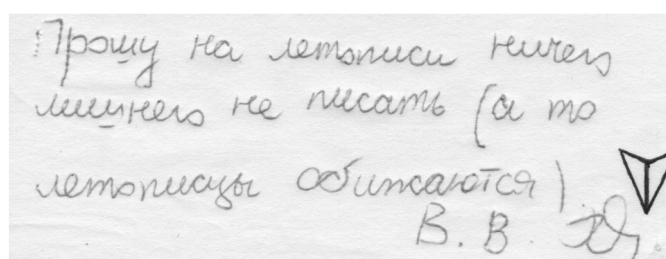 Прошу на летописи ничего
лишнего не писать (а то
летописцы обижаются).
В. В.